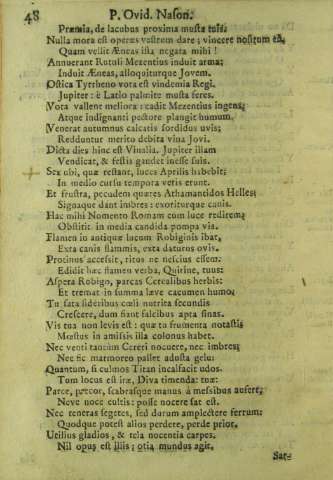 48
P. Ovid. Nason.
Præmia, de lacubus proxima musta tuis:
Nulla mora est operæ vestrum dare; vincere nostrum est,
Quam vellit Æneas ista negata mihi!
Annuerant Rutuli Mezentius induit arma;
Induit Æneas, alloquiturque Jovem.
Ostica Tyrrheno vota est vindemia Regi.
Jupiter: è Latio palmite musta feres.
Vota valent meliora: cadit Mezentius ingens,
Atque indignanti pectore plangit humum.
Venerat autumnus calcatis sordidus uvis;
Redduntur merito debita vina Jovi.
Dicta dies hinc est Vinalia. Jupiter illam
Vendicat, & festis gaudet inesse suis.
Sex ubi, quæ restant, luces Aprilis habebit;
In medio cursu tempora veris erunt.
Et frustra, pecudem quæres Athamantidos Helles;
Signaque dant imbres: exoriturque canis.
Hac mihi Nomento Romam cum luce redirem;
Obstitit in media candida pompa via.
Flamen io antiquæ lucum Robiginis ibat,
Exta canis flammis, exta daturus ovis.
Protinus accessit, ritus ne nescius essem.
Edidit hæc flamen verba, Quirine, tuus:
Aspera Robigo, parcas Cerealibus herbis;
Et tremat in summa læve cacumen humo;
Tu sata sideribus cœli nutrita secundis
Crescere, dum fiant falcibus apta sinas.
Vis tua non levis est: quæ tu frumenta notasti
Mœstus in amissis illa colonus habet.
Nec venti tantùm Cereri nocuere, nec imbres;
Nec sic marmoreo pallet adusta gelu:
Quantum, si culmos Titan incalfacit udos.
Tum locus est iræ, Diva timenda: tuæ:
Parce, precor, scabrasque manus à messibus aufert;
Neve noce cultis: posse nocere sat est.
Nec teneras segetes, sed durum amplectere ferrum:
Quodque potest alios perdere, perde prior.
Utilius gladios, & tela nocentia carpes.
Nil opus est illis: otia mundus agit.
Sar-